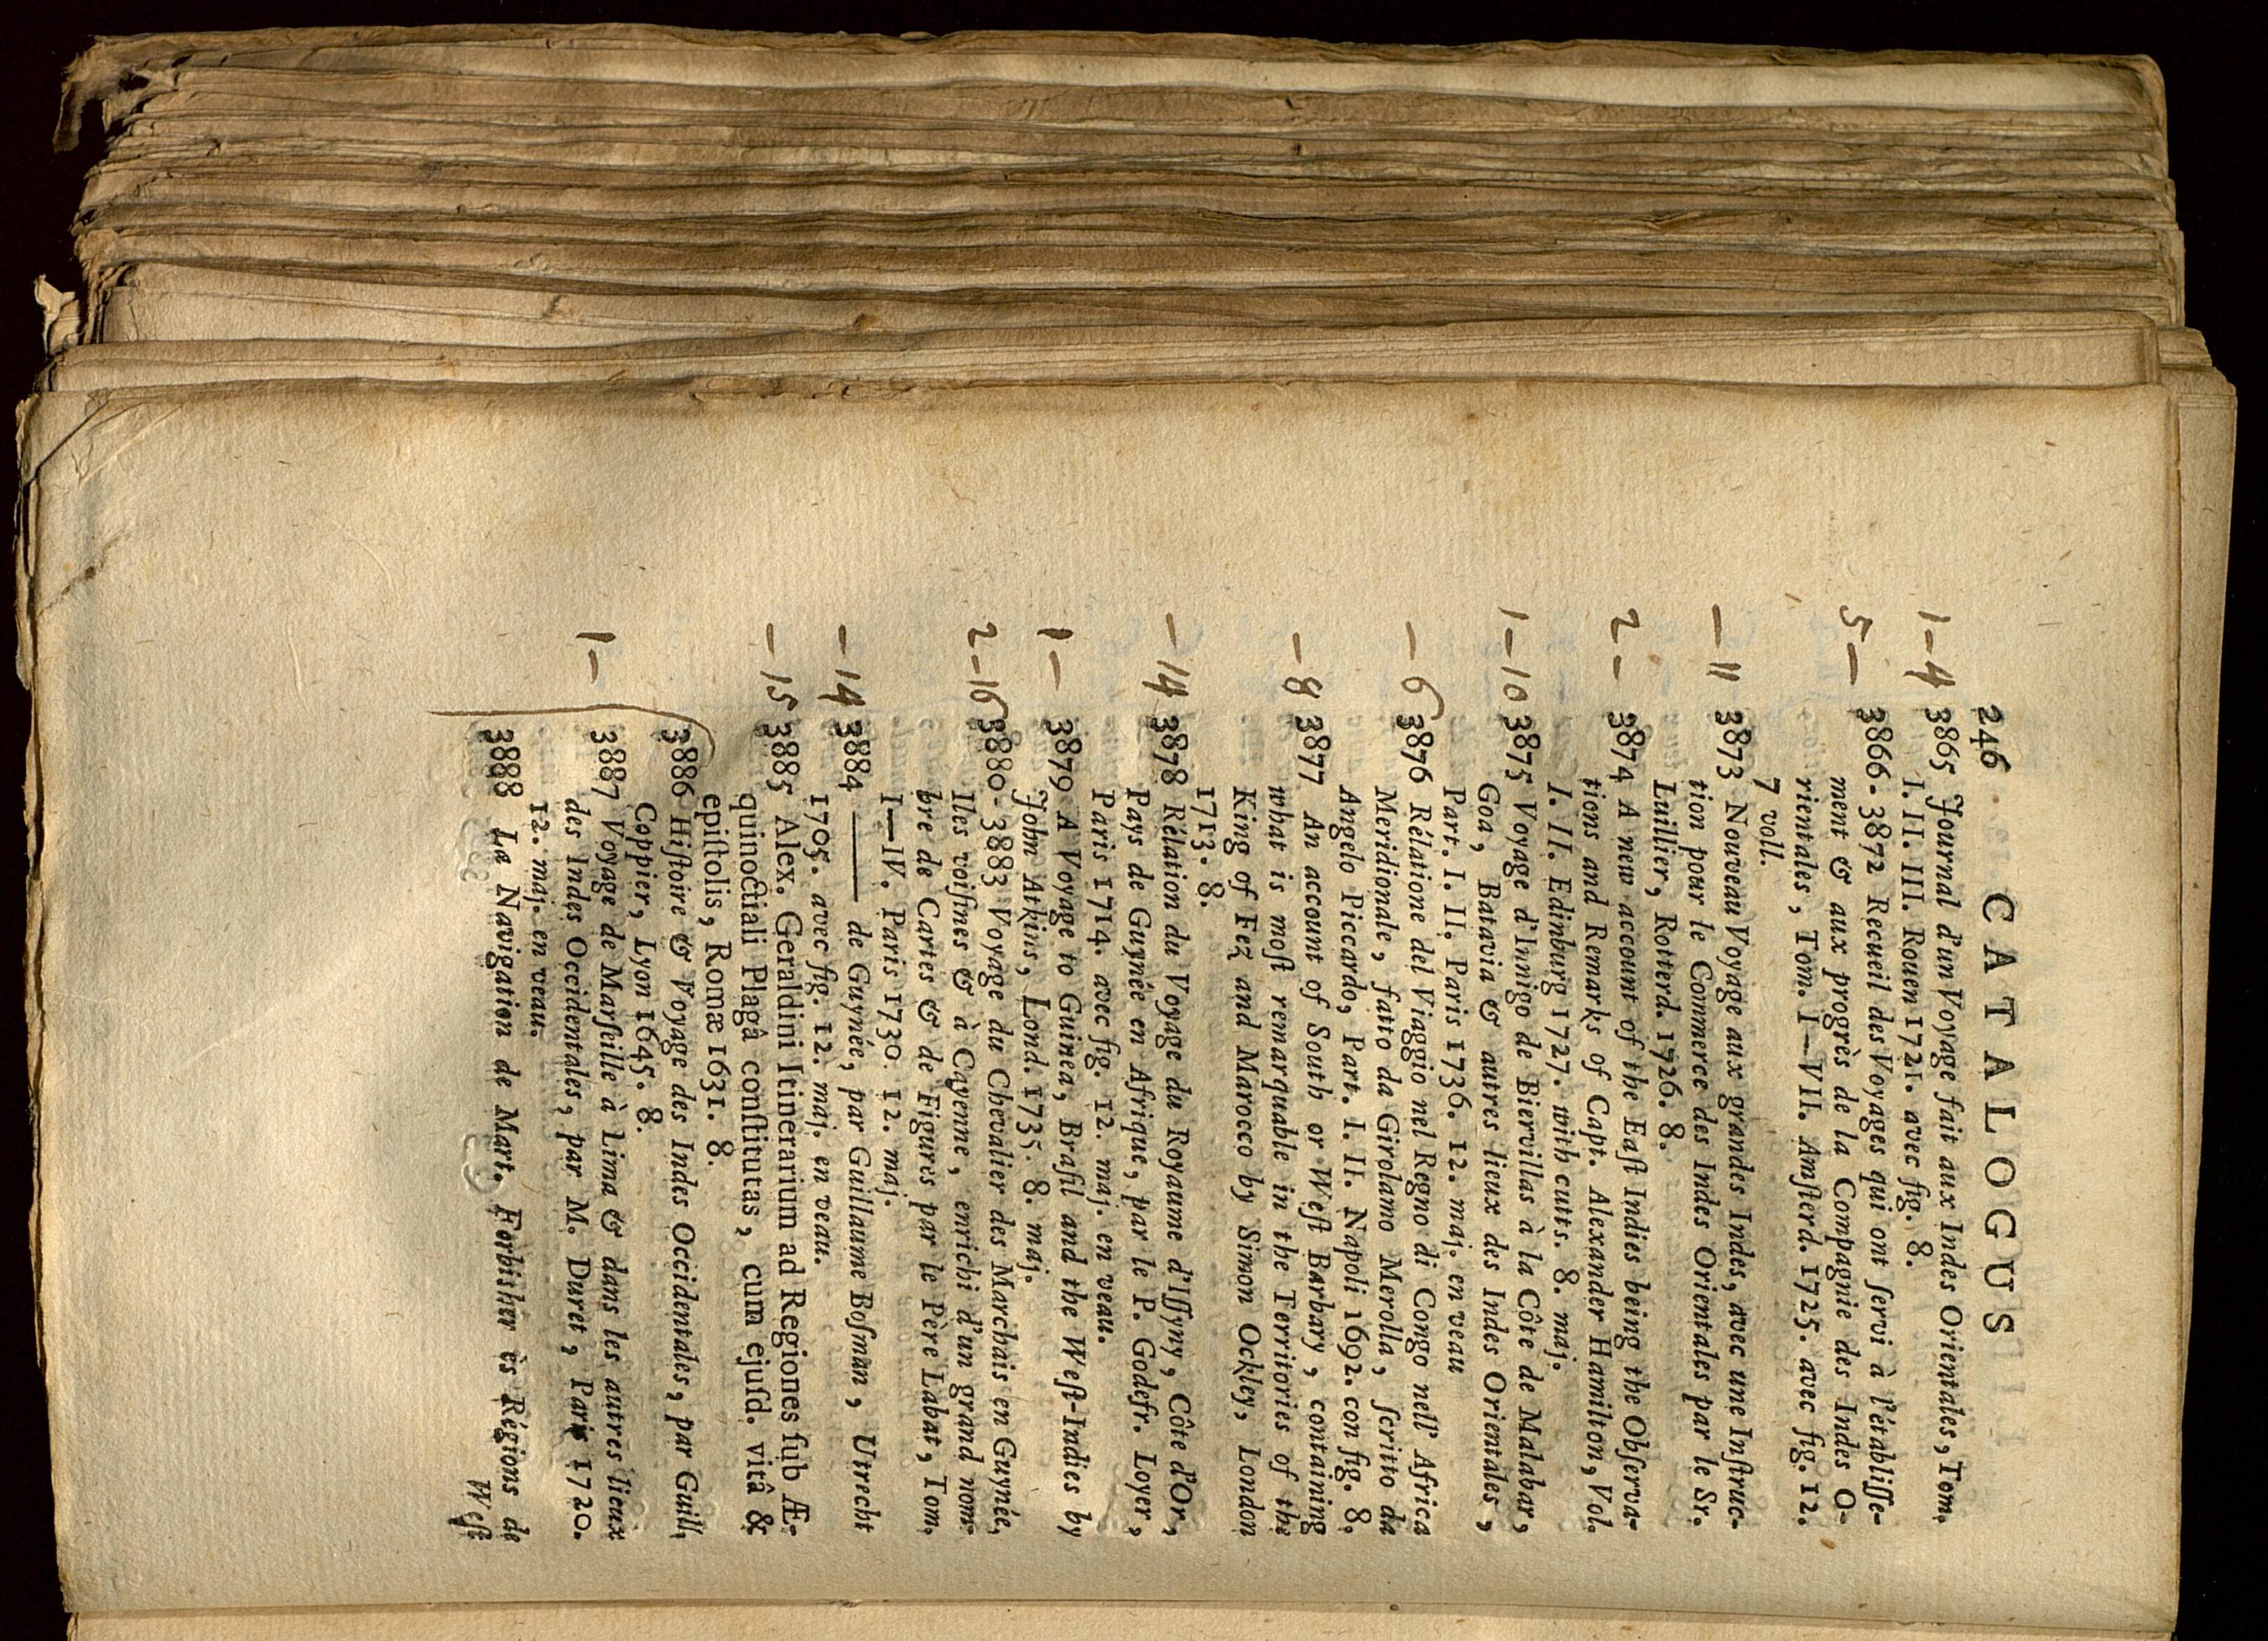 246 CATALOGUS
1-4 3865 Journal d'un Voyage fait aux Indes Orientales, Tom.
I. II. III. Rouen 1721. avec fig. 8.
5- 3866-3872 Recueil des Voyages qui ont ſervi à l'établiſſe-
ment & aux progrès de la Compagnie des Indes O-
rientales, Tom. I—VII. Amſterd. 1725. avec fig. 12.
7 voll.
-11 3873 Nouveau Voyage aux grandes Indes, avec une Inſtruc-
tion pour le Commerce des Indes Orientales par le Sr.
Luillier, Rotterd. 1726. 8.
2- 3874 A new account of the Eaſt Indies being the Obſerva-
tions and Remarks of Capt. Alexander Hamilton, Vol.
I. II. Edinburg 1727. with cutts. 8. maj.
1-10 3875 Voyage d'Innigo de Biervillas à la Côte de Malabar,
Goa, Batavia & autres lieux des Indes Orientales,
Part. I. II. Paris 1736. 12. maj. en veau
-6 3876 Rélatione del Viaggio nel Regno di Congo nell' Africa
Meridionale, fatto da Girolamo Merolla, ſcritto da
Angelo Piccardo, Part. I. II. Napoli 1692. con fig. 8.
-8 3877 An account of South or Weſt Barbary, containing
what is moſt remarquable in the Territories of the
King of Fez and Marocco by Simon Ockley, London
1713. 8.
-14 3878 Rélation du Voyage du Royaume d'Iſſyny, Côte d'Or,
Pays de Guynée en Afrique, par le P. Godefr. Loyer,
Paris 1714. avec fig. 12. maj. en veau.
1- 3879 A Voyage to Guinea, Braſil and the Weſt-Indies by
John Atkins, Lond. 1735. 8. maj.
2-16 3880-3883 Voyage du Chevalier des Marchais en Guynée,
Iles voiſines & à Cayenne, enrichi d'un grand nom-
bre de Cartes & de Figures par le Père Labat, Tom.
I—IV. Paris 1730 12. maj.
-14 3884 ——— de Guynée, par Guillaume Boſman, Utrecht
1705. avec fig. 12. maj. en veau.
-15 3885 Alex. Geraldini Itinerarium ad Regiones ſub Æ-
quinoctiali Plagâ conſtitutas, cum ejuſd. vitâ &
epiſtolis, Romæ 1631. 8.
3886 Hiſtoire & Voyage des Indes Occidentales, par Guill,
Coppier, Lyon 1645. 8.
1- 3887 Voyage de Marſeille à Lima & dans les autres lieux
des Indes Occidentales, par M. Duret, Paris 1720.
12. maj. en veau.
3888 La Navigation de Mart. Forbiſher ès Régions de
Weſt